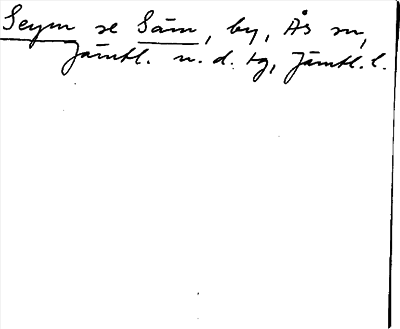 Seym se Säm, by, Ås sn,
Jämtl. n. d. tg, Jämtl. l.